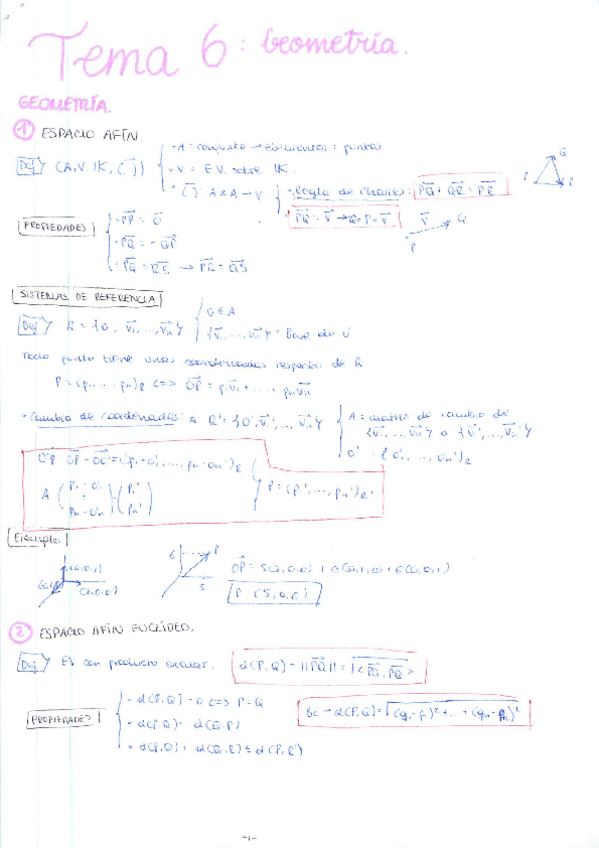 Tema 6: Geometría.
GEOMETRÍA.
① ESPACIO AFÍN.
Def (A, V, IK, (→)) · A = conjunto → elementos: puntos
· V = E.V. sobre IK.
· (→): A x A → V · Regla de Chasles: PQ + QR = PR
PQ = v → Q = P + v
P Q R
v Q
P
PROPIEDADES · PP = 0
· PQ = - QP
· PQ = RS → PR = QS
SISTEMAS DE REFERENCIA
Def R = {0, v₁, ..., vₙ} 0 ∈ A
{v₁, ..., vₙ} = Base de V
Todo punto tiene unas coordenadas respecto de R
P = (p₁ ... pₙ)R <=> OP = p₁v₁ + ... + pₙvₙ
· Cambio de coordenadas: a R' = {0', v₁', ..., vₙ'} A = matriz de cambio de
{v₁, ..., vₙ} a {v₁', ..., vₙ'}
0' = (0₁', ..., 0ₙ')R
O'P OP - OO' = (p₁ - 0₁', ..., pₙ - 0ₙ')R
A (p₁ - 0₁' ⋮ pₙ - 0ₙ') (p₁' ⋮ pₙ') P = (p₁', ..., pₙ')R'
Ejemplo
(0,0,1)
6 P
5
OP = 5(1,0,0) + 0(0,1,0) + 6(0,0,1)
P (5,0,6)
② ESPACIO AFÍN EUCLÍDEO.
Def EV con producto escalar. d(P,Q) = ||PQ|| = √<PQ, PQ>
PROPIEDADES · d(P,Q) = 0 <=> P = Q
· d(P,Q) = d(Q,P)
· d(P,Q) + d(Q,R) ≥ d(P,R)
d(P,Q) = √(q₁ - p₁)² + ... + (qₙ - pₙ)²
-1-